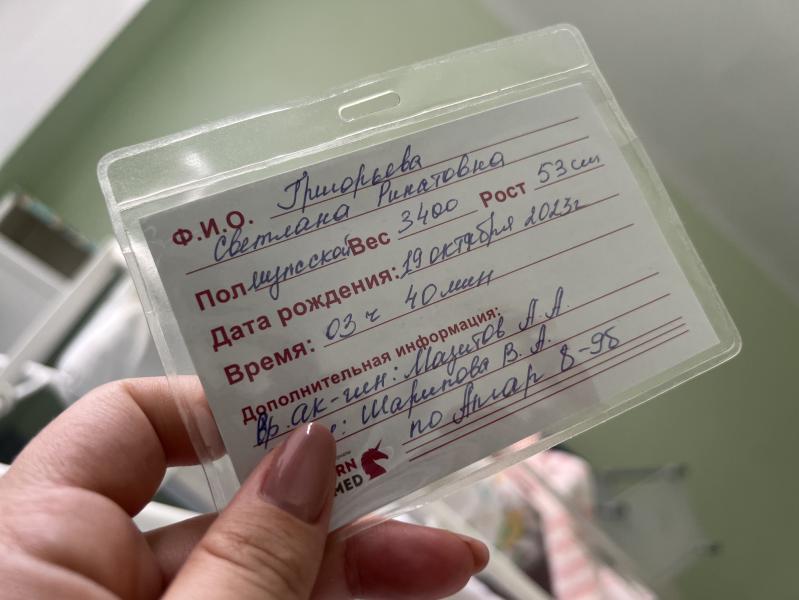 Ф.И.О. Григорьева
Светлана Ринатовна
Пол мужской Вес 3400 Рост 53 см
Дата рождения: 19 октября 2023г
Время: 03 ч 40 мин
Дополнительная информация:
Вр. ак-гин: Мазитов А.А.
Шарипова В.А.
по Апгар 8-9б
RN
MED